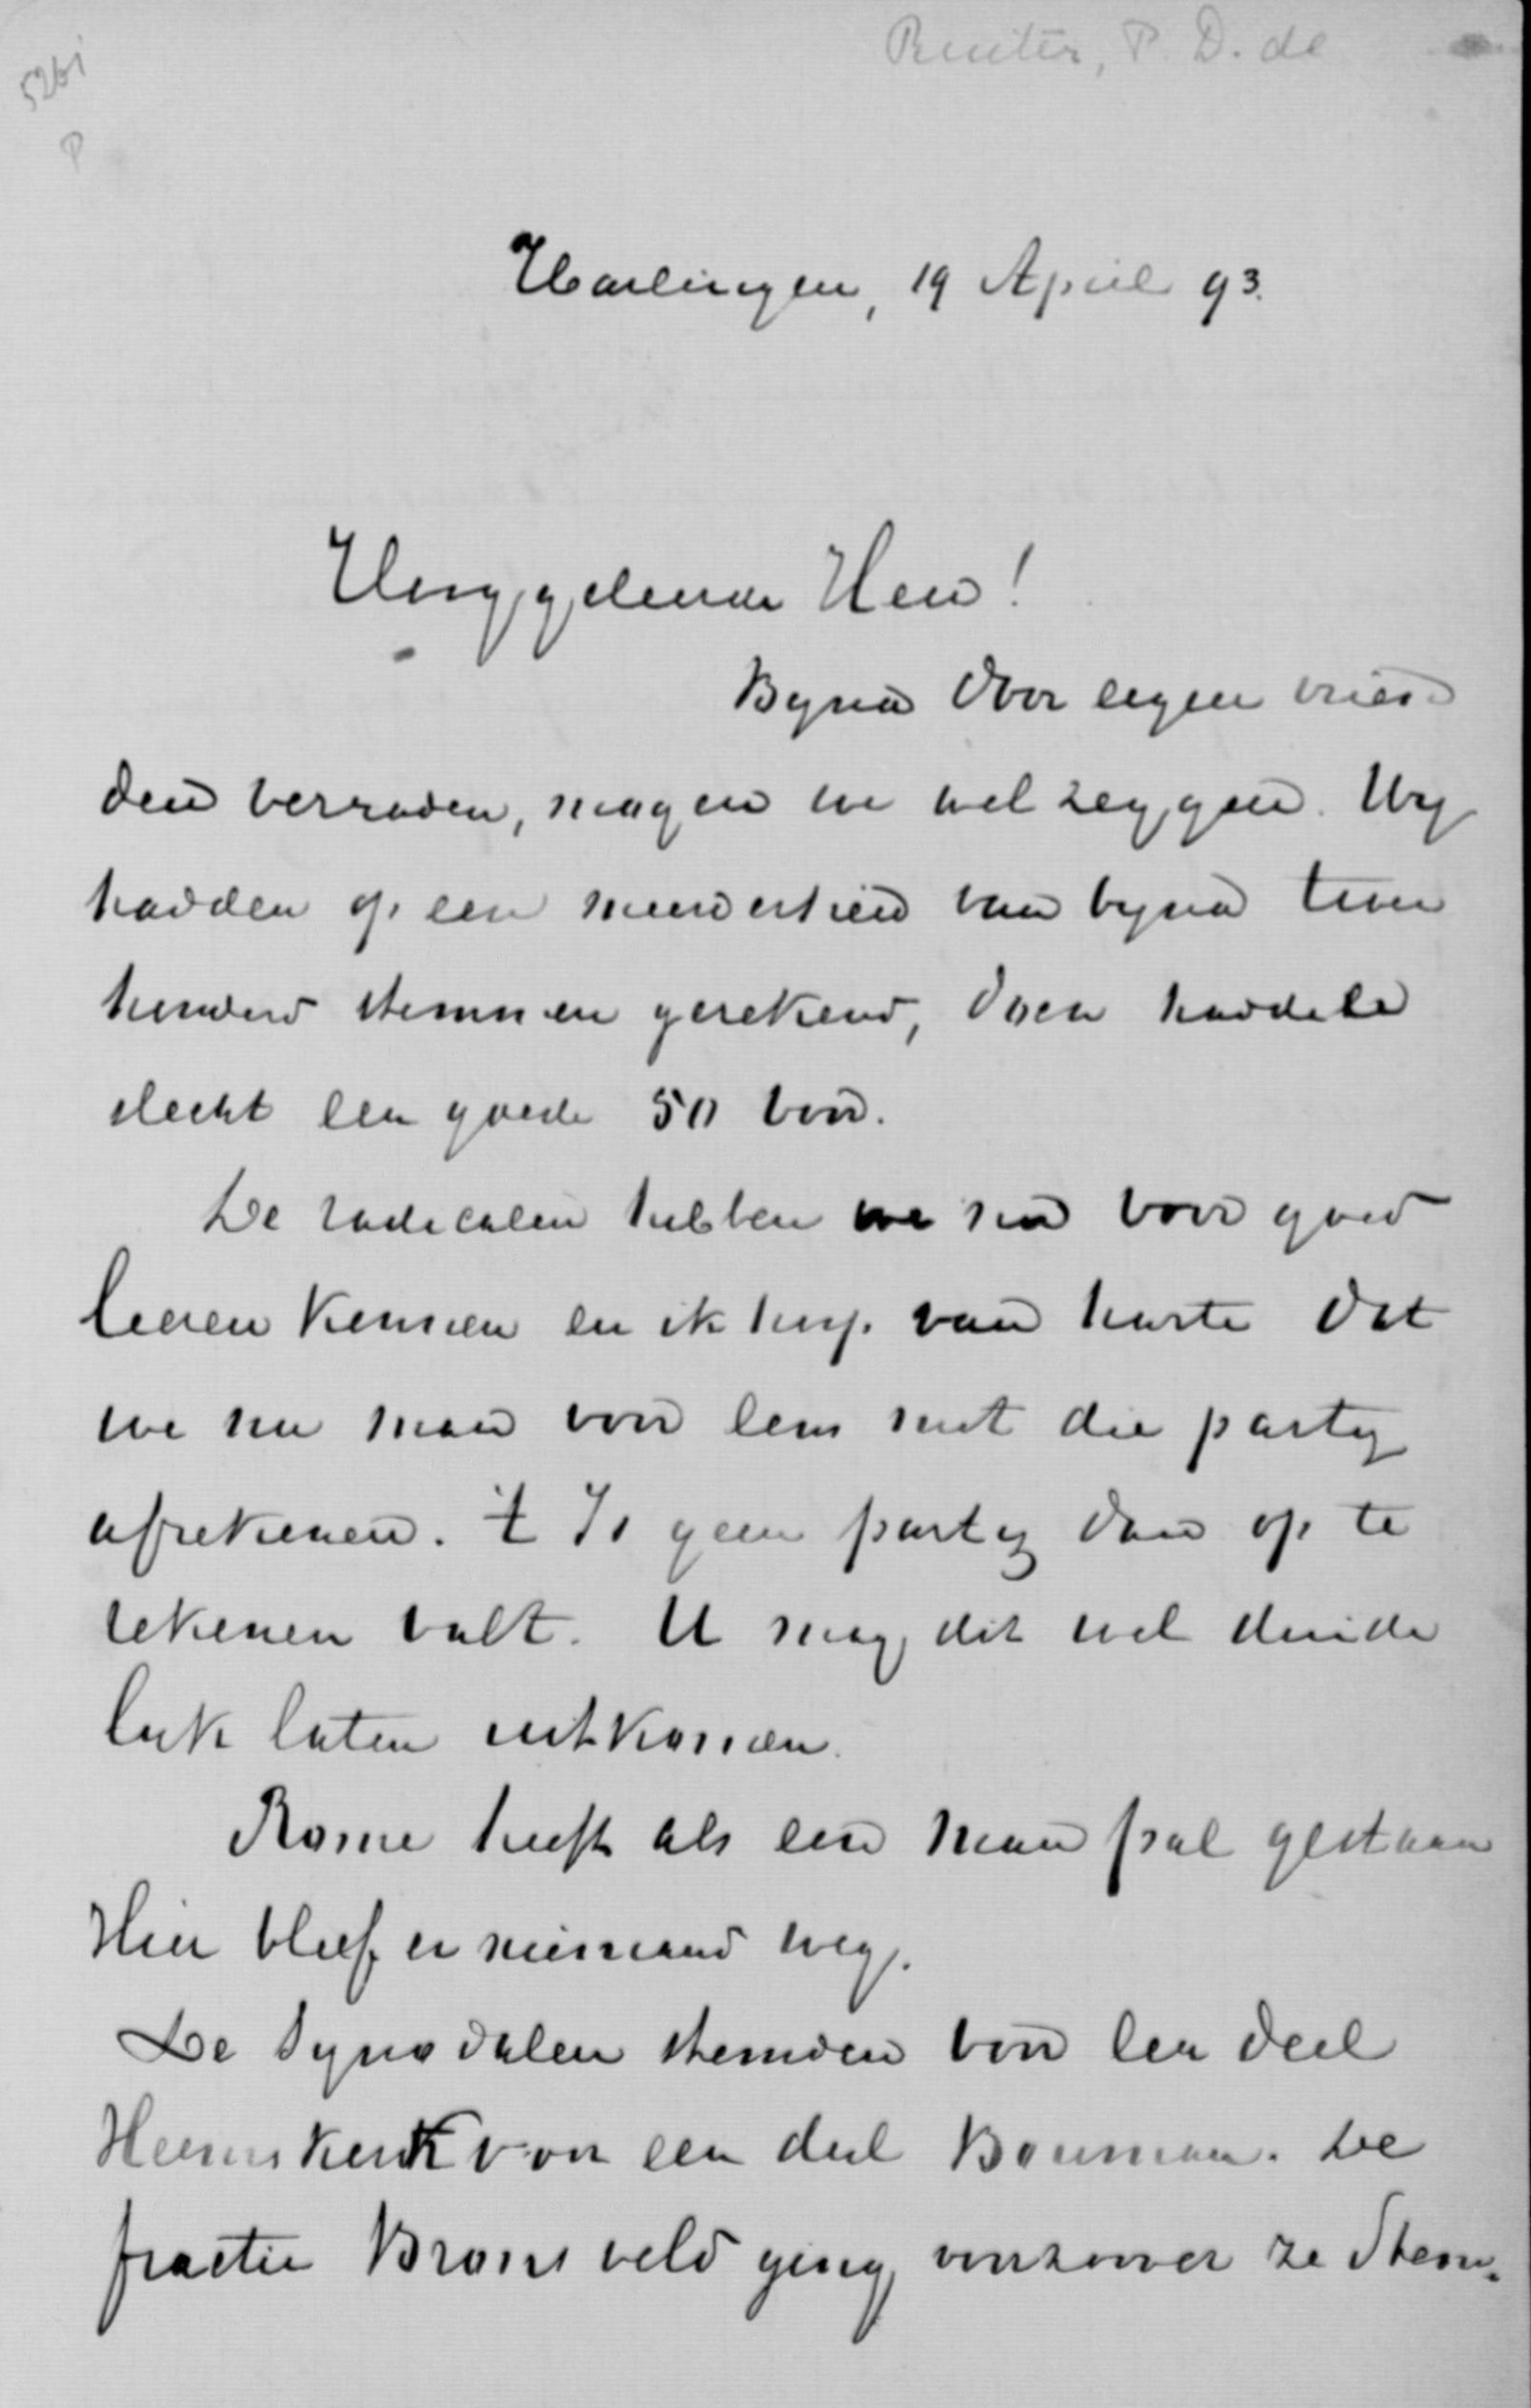 Ruiter, P. D. de
5261
P
Harlingen, 19 April 93.
Hooggeleerde Heer!
Byna door eigen vrien
den verraden, mogen we wel zeggen. Wy
hadden op een meerderheid van byna twee
honderd stemmen gerekend, doch hadden
slecht een goede 50 voor.
De radicalen hebben we nu voor goed
leeren kennen en ik hoop van harte dat
we nu maar voor eens met die party
afrekenen. 't Is geen party daar op te
rekenen valt. U mag dit wel duide
lijk laten uitkomen.
Rome heeft als een man pal gestaan
Hier bleef er niemand weg.
De Synodalen stemden voor een deel
Heemskerk voor een deel Bouman. De
fractie Bronsveld ging voorzoover ze stem-